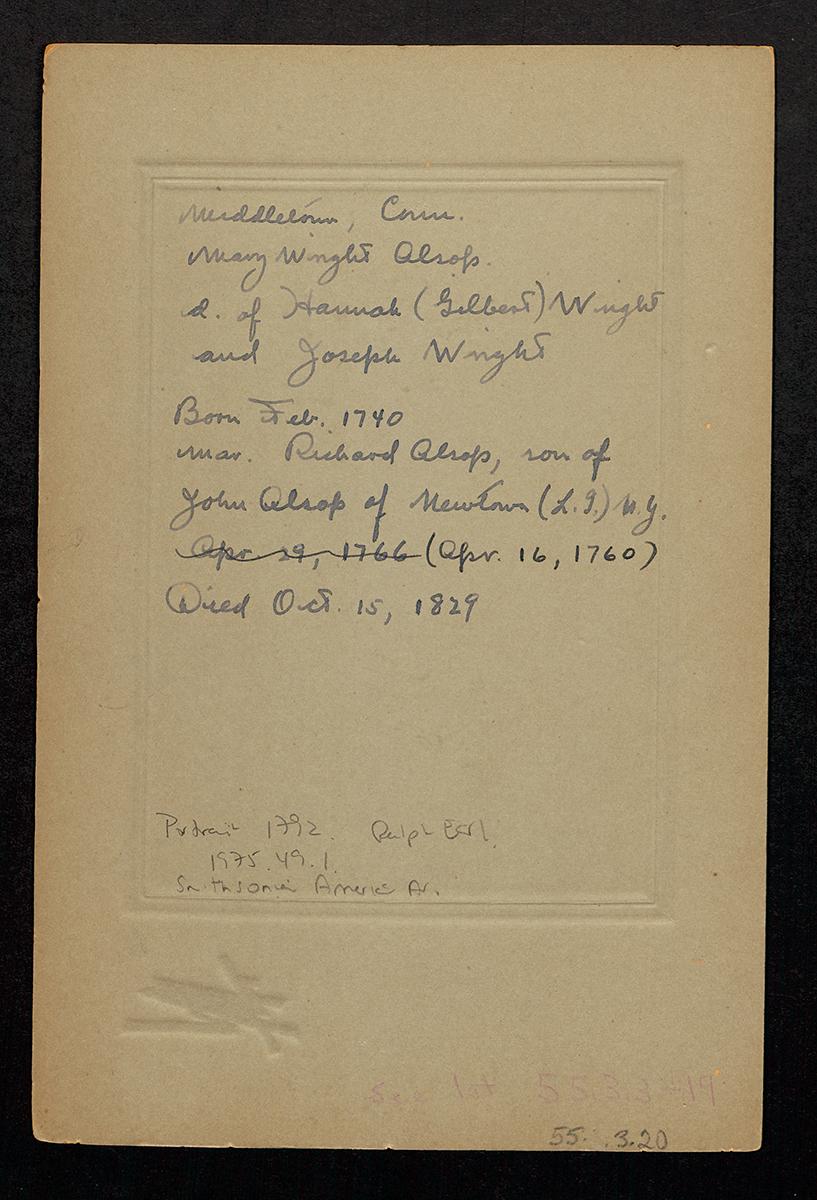 Middletown, Conn.
Mary Wright Alsop.
d. of Hannah (Gilbert) Wright
and Joseph Wright
Born Feb. 1740
mar. Richard Alsop, son of
John Alsop of Newtown (L.I.) N.Y.
Apr. 29, 1766 (Apr. 16, 1760)
Died Oct. 15, 1829
Portrait 1792. Ralph Earl.
1975.49.1.
Smithsonian America Ar.
See 1st
55. .3.20